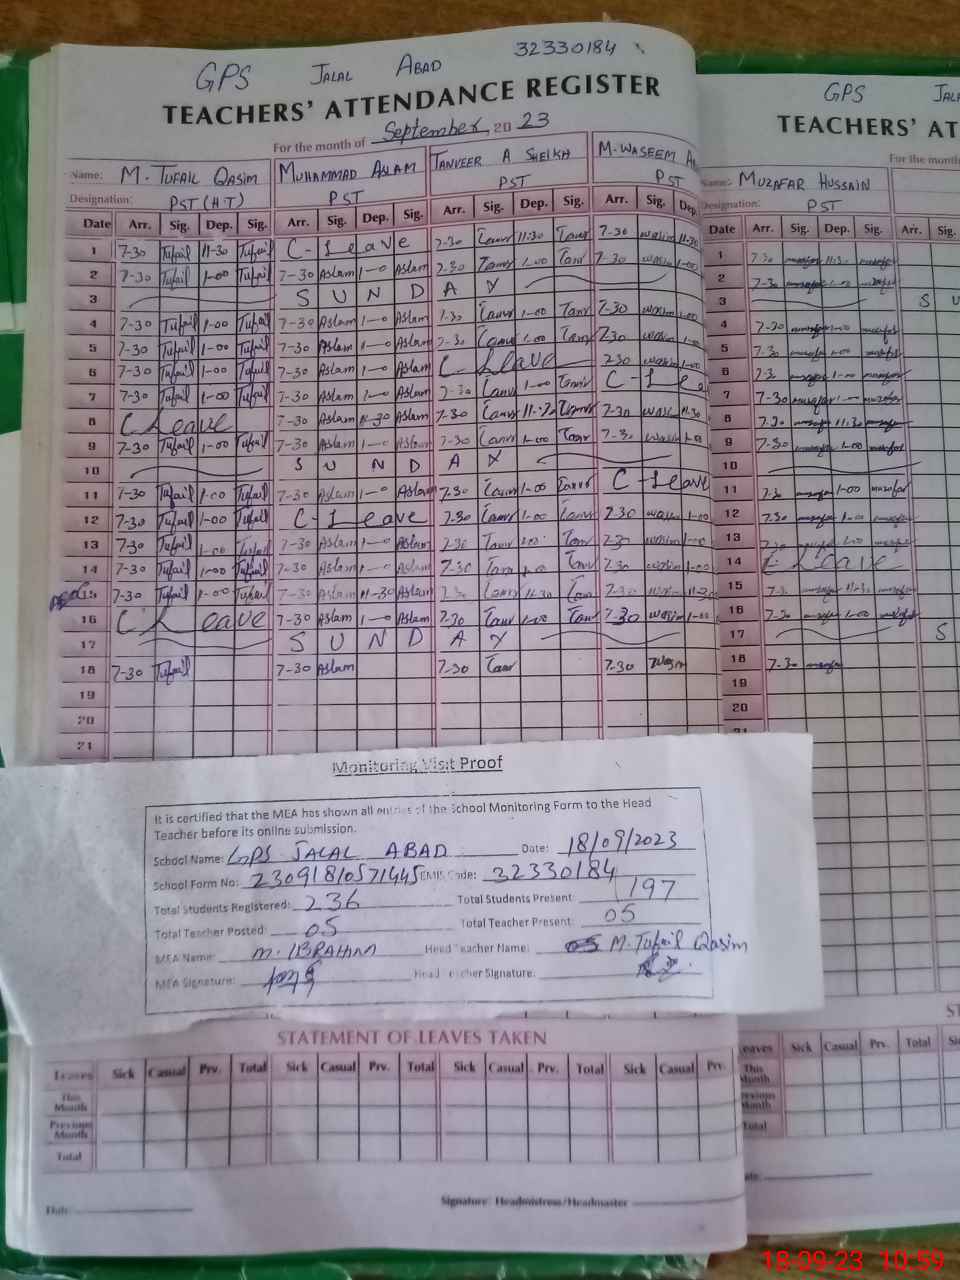 GPS JALAL ABAD 32330184
TEACHERS' ATTENDANCE REGISTER
For the month of September, 20 23
Name: M. TUFAIL QASIM MUHAMMAD ASLAM TANVEER A SHEIKH M. WASEEM
Designation: PST (H.T) PST PST PST
Date Arr. Sig. Dep. Sig. Arr. Sig. Dep. Sig. Arr. Sig. Dep. Sig. Arr. Sig. Dep.
1 7-30 Tufail 11-30 Tufail C-Leave 7-30 Tanvr 11-30 Tanvr 7-30 wasim 11-30
2 7-30 Tufail 1-00 Tufail 7-30 Aslam 1-0 Aslam 7-30 Tanvr 1-00 Tanvr 7-30 wasim 1-00
3 SUNDAY
4 7-30 Tufail 1-00 Tufail 7-30 Aslam 1-0 Aslam 7-30 Tanvr 1-00 Tanvr 7-30 wasim 1-00
5 7-30 Tufail 1-00 Tufail 7-30 Aslam 1-0 Aslam 7-30 Tanvr 1-00 Tanvr 7-30 wasim 1-00
6 7-30 Tufail 1-00 Tufail 7-30 Aslam 1-0 Aslam C Leave 7-30 wasim 1-00
7 7-30 Tufail 1-00 Tufail 7-30 Aslam 1-0 Aslam 7-30 Tanvr 1-00 Tanvr C-Lea
8 C Leave 7-30 Aslam 11-30 Aslam 7-30 Tanvr 11-30 Tanvr 7-30 wasim 11-30
9 7-30 Tufail 1-00 Tufail 7-30 Aslam 1-0 Aslam 7-30 Tanvr 1-00 Tanvr 7-30 wasim 1-00
10 SUNDAY
11 7-30 Tufail 1-00 Tufail 7-30 Aslam 1-0 Aslam 7-30 Tanvr 1-00 Tanvr C-Leave
12 7-30 Tufail 1-00 Tufail C-Leave 7-30 Tanvr 1-00 Tanvr 7-30 wasim 1-00
13 7-30 Tufail 1-00 Tufail 7-30 Aslam 1-0 Aslam 7-30 Tanvr 1-00 Tanvr 7-30 wasim 1-00
14 7-30 Tufail 1-00 Tufail 7-30 Aslam 1-0 Aslam 7-30 Tanvr 1-00 Tanvr 7-30 wasim 1-00
15 7-30 Tufail 1-00 Tufail 7-30 Aslam 11-30 Aslam 7-30 Tanvr 11-30 Tanvr 7-30 wasim 11-30
16 C Leave 7-30 Aslam 1-0 Aslam 7-30 Tanvr 1-00 Tanvr 7-30 wasim 1-00
17 SUNDAY
18 7-30 Tufail 7-30 Aslam 7-30 Tanvr 7-30 wasim
19
20
21
Monitoring Visit Proof
It is certified that the MEA has shown all entries of the School Monitoring Form to the Head
Teacher before its online submission.
School Name: GPS JALAL ABAD Date: 18/09/2023
School Form No: 23091810571445 EMIS Code: 32330184
Total Students Registered: 236 Total Students Present: 197
Total Teacher Posted: 05 Total Teacher Present: 05
MEA Name: M. IBRAHIM Head Teacher Name: M. Tufail Qasim
MEA Signature: Head Teacher Signature:
STATEMENT OF LEAVES TAKEN
Leaves Sick Casual Prv. Total Sick Casual Prv. Total Sick Casual Prv. Total Sick Casual Prv.
This Month
Previous Month
Total
Date Signature: Headmistress/Headmaster
GPS JALA
TEACHERS' AT
For the month
Name: MUZAFAR HUSSAIN
Designation: PST
Date Arr. Sig. Dep. Sig. Arr. Sig.
1 7-30 muzafar 11-30 muzafar
2 7-30 muzafar 1-00 muzafar
3 S U
4 7-30 muzafar 1-00 muzafar
5 7-30 muzafar 1-00 muzafar
6 7-30 muzafar 1-0 muzafar
7 7-30 muzafar 1-0 muzafar
8 7-30 muzafar 11-30 muzafar
9 7-30 muzafar 1-00 muzafar
10
11 7-30 muzafar 1-00 muzafar
12 7-30 muzafar 1-00 muzafar
13 7-30 muzafar 1-00 muzafar
14 C Leave
15 7-30 muzafar 11-30 muzafar
16 7-30 muzafar 1-00 muzafar
17 S
18 7-30 muzafar
19
20
21
ST
Leaves Sick Casual Prv. Total
This Month
Previous Month
Total
18-09-23 10:59